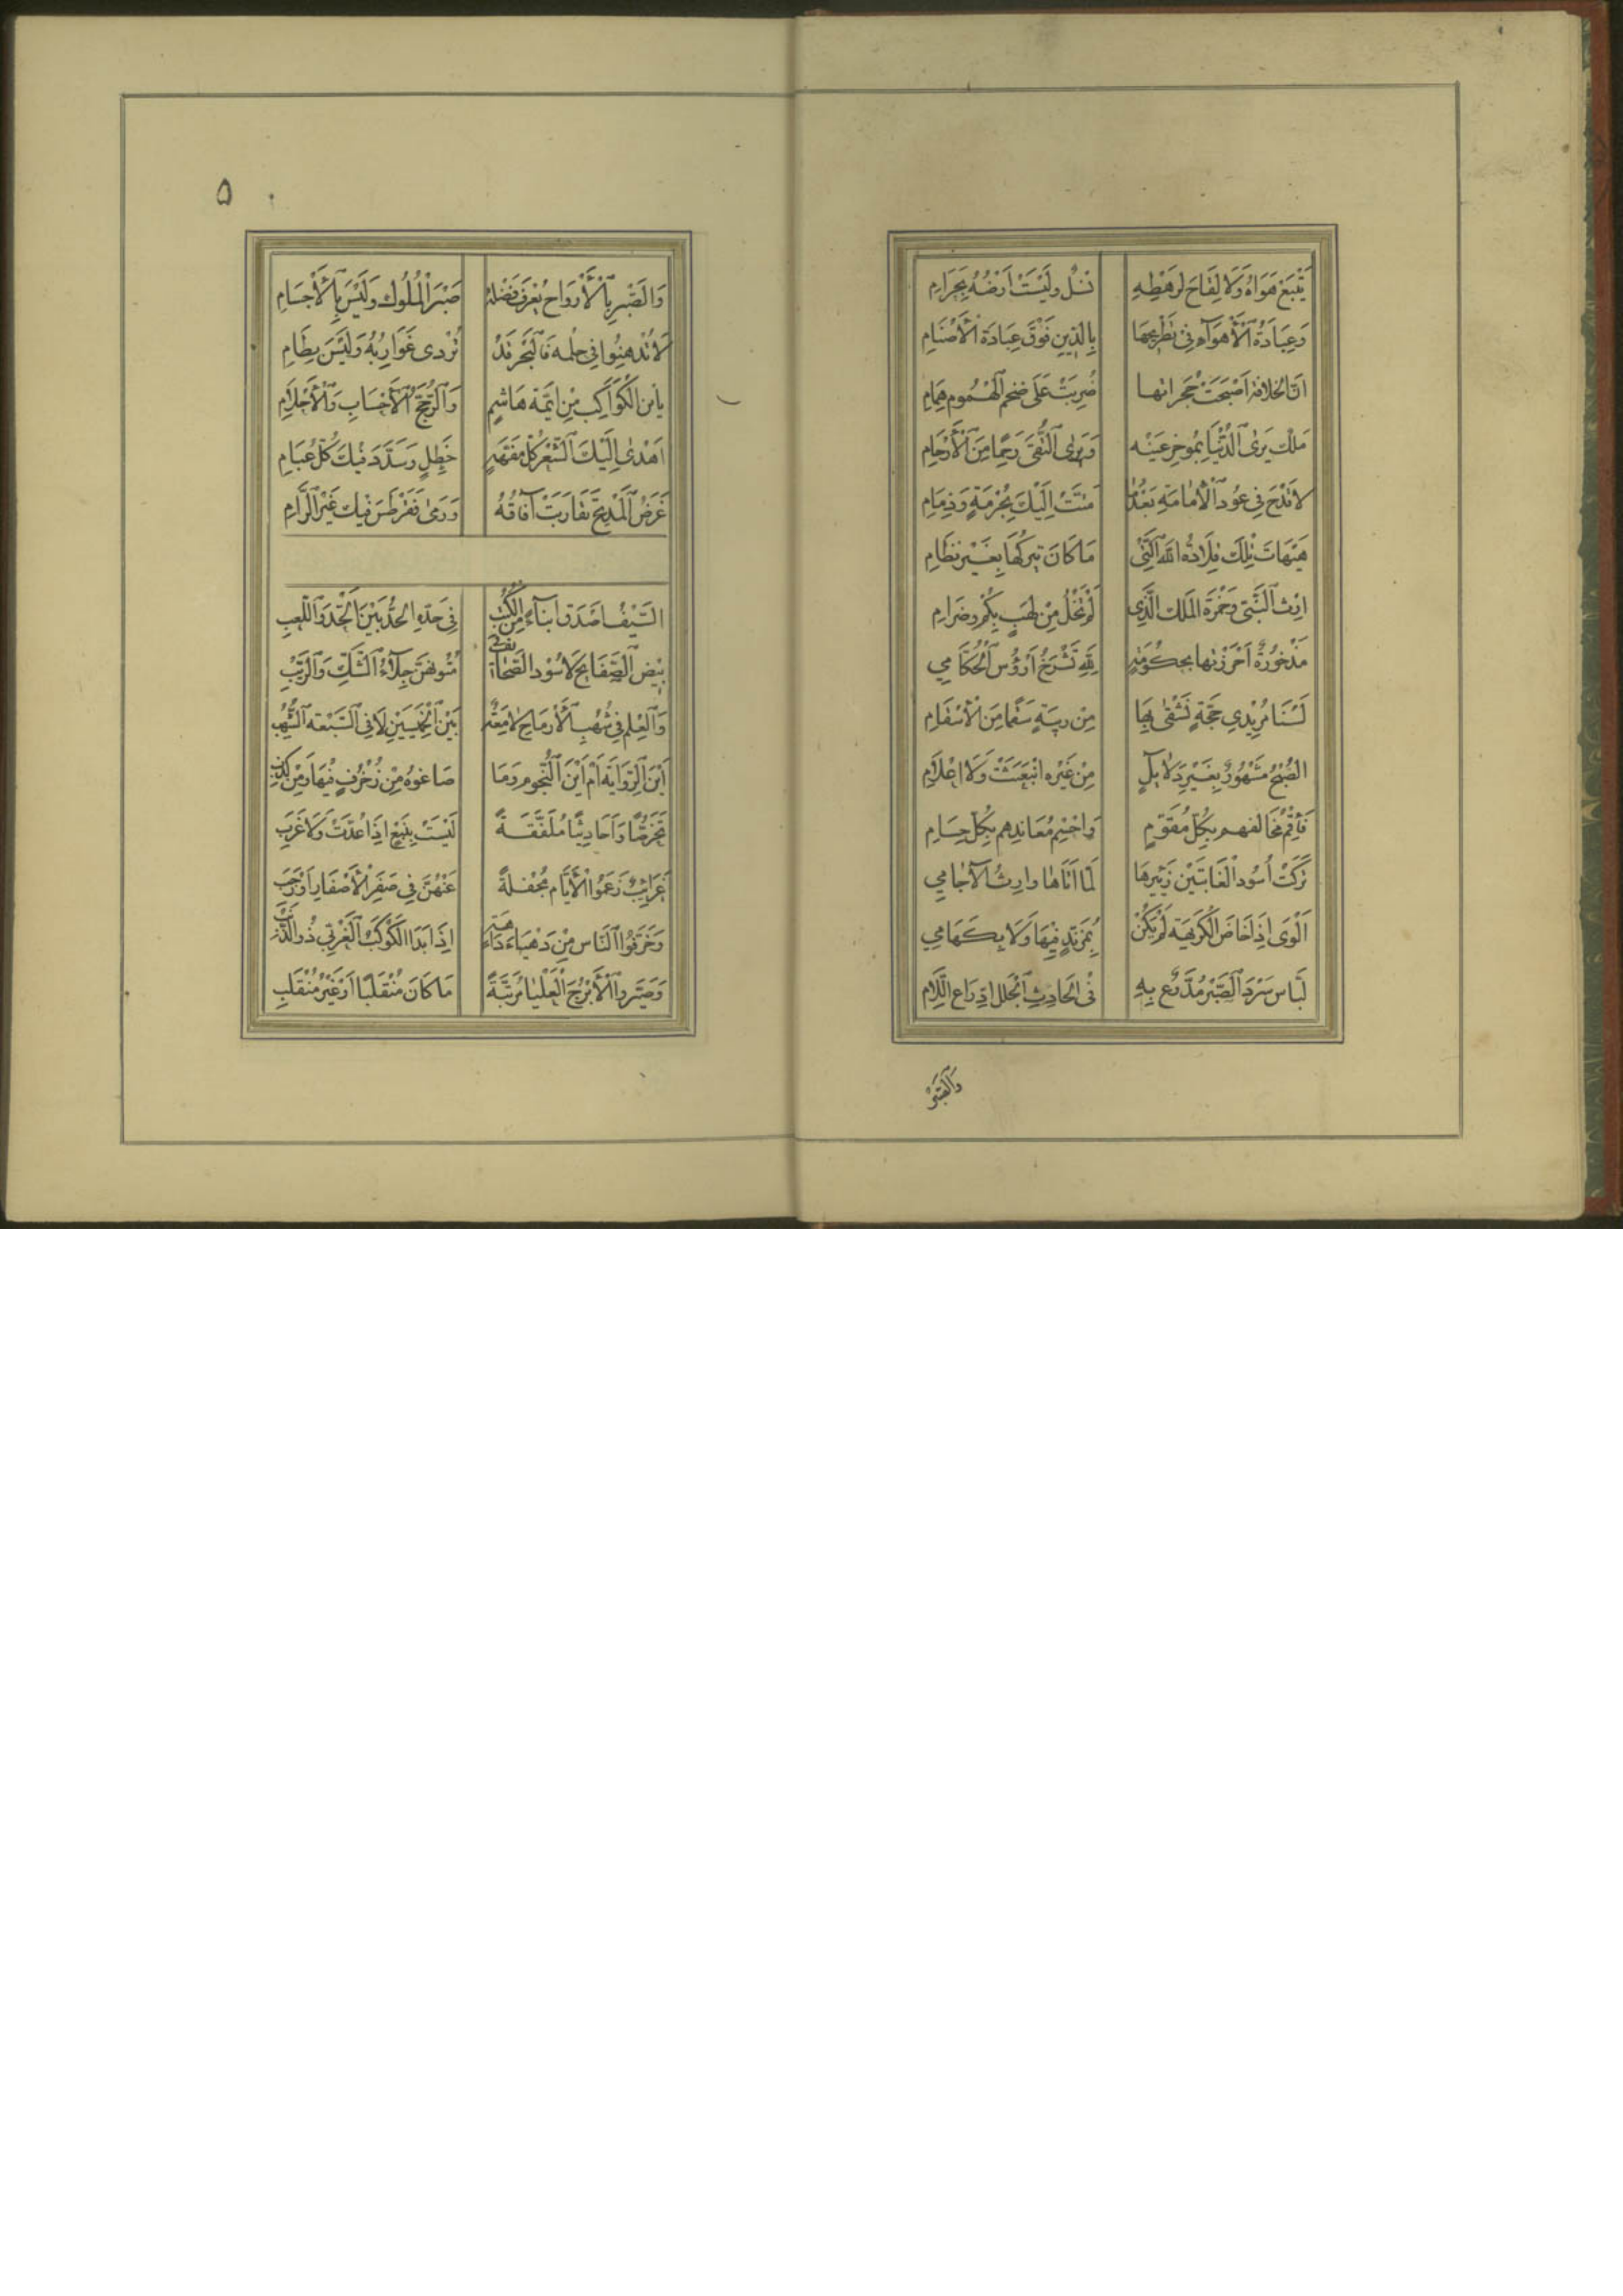 يَتْبَعْ هَوَاهُ وَلَا لِقَاحَ لِرَهْطِهِ نُسُلٌ وَلَيْسَتْ اَرْضُهُ بِحَرَامِ
وَعِبَادَةُ الْأَهْوَآءِ فِى تَطْرِيحِهَا بِالدِّينِ فَوْقَ عِبَادَةِ الْأَصْنَامِ
اِنَّ الخِلَافَةَ اَصْبَحَتْ حُجُرَاتُها ضُرِبَتْ عَلَى ضَخْمِ الْهُمُومِ هُمَامِ
مَلِكٌ يَرَى الدُّنْيَا بِمُوخِرِ عَيْنِهِ وَيَرَى التُّقَى رَحِمًا مِنَ الْأَرْحَامِ
لَا قَدْحَ فِى عُودِ الْأِمَامَةِ بَعْدَمَا مَتَّتْ اِلَيْكَ بِحُرْمَةٍ وَذِمَامِ
هَيْهَاتَ تِلْكَ قِلَادَةُ اللهِ الَّتِى مَا كَانَ يَتْرُكُهَا بِغَيْرِ نِظَامِ
اِرْثُ النَّبِىِّ وَجَمْرَةُ المَلِكِ الَّذِى لَمْ تَخْلُ مِنْ لَهَبٍ بِكُمْ وضِرَامِ
مَذْخُورَةٌ اَحْرَزْتَها بِحُكُومَةٍ لِلّٰهِ تَشْدَخُ اَرْؤُسَ الْحُكَّامِى
لَسْنَا مُرِيْدِى حُجَّةٍ نَشْفَى بِهَا مِنْ رِيبَةٍ سَقَمًا مِنَ الْأَسْقَامِ
الصُّبْحُ مَشْهُورٌ بِغَيْرِ دَلَائِلٍ مِنْ غَيْرِهِ انْبَعَثَتْ وَلَا اعْلَامِ
فَأَقِمْ مُخَالِفَهم بِكُلِّ مُقَوَّمٍ وَاحْسِمْ مُعَانِدَهم بِكُلِّ حِسَامِ
تَرَكَتْ اُسُودُ الْغَابَتَيْنِ زَئِيْرَهَا لَمَّا اَتَاهَا وارِثُ الْآجَامِى
اَلْوَى اِذَا خَاضَ الْكَرِيهَةَ لَمْ يَكُنْ بِمُزَنَّدٍ فِيْهَا وَلَا بِكَهَامِى
لَبَّاسُ سَرْدِ الصَّبْرِ مُدَّرِعٌ بِهِ فِى الْحَادِثِ الْجَلَلِ ادِّرَاعَ اللَّامِ
وَالصَّبْرُ
۵
وَالصَّبْرُ بِالْأَرْوَاحِ يُعْرَفُ فَضْلُهُ صَبْرُ الْمُلُوكِ وَلَيْسَ بِالْأَجْسَامِ
لَا تُدْهِنُوا فِى حِلْمِهِ فَالْبَحْرُ قَدْ تُرْدِى غَوَارِبُهُ وَلَيْسَ بِطَامِ
يَابْنَ الْكَوَاكِبِ مِنْ اَئِمَّةِ هَاشِمٍ وَالرُّجَّحِ الْأَحْسَابِ وَالْأَحْلَامِ
اَهْدَى اِلَيْكَ الشِّعْرَ كُلُّ مُفَهَّهٍ خَطِلٍ وَسَدَّدَ فِيْكَ كُلُّ عَبَامِ
غَرَضُ الْمَدِيْحِ تَقَارَبَتْ آفَاقُهُ وَرَمَى فَقَرْطَسَ فِيْكَ غَيْرُ الرَّامِ
السَّيْفُ اَصْدَقُ اَنْبَآءً مِنَ الْكُتُبِ فِى حَدِّهِ الْحَدُّ بَيْنَ الْجِدِّ وَاللَّعِبِ
بِيْضُ الصَّفَايِحِ لَا سُوْدُ الصَّحَائِفِ فِى مُتُونِهِنَّ جِلَآءُ الشَّكِّ وَالرِّيَبِ
وَالْعِلْمُ فِى شُهُبِ الْأَرْمَاحِ لَامِعَةً بَيْنَ الْخَمِيسَيْنِ لَا فِى السَّبْعَةِ الشُّهُبِ
اَيْنَ الرِّوَايَةُ اَمْ اَيْنَ النُّجُومُ وَمَا صَاغُوهُ مِنْ زُخْرُفٍ فِيْهَا وَمِنْ كَذِبِ
تَخَرُّصًا وَاَحَادِيْثًا مُلَفَّقَةً لَيْسَتْ بِنَبْعٍ اِذَا عُدَّتْ وَلَا غَرَبِ
عَجَائِبٌ زَعَمُوا الْأَيَّامَ مُجْفِلَةً عَنْهُنَّ فِى صَفَرِ الْأَصْفَارِ اَوْ رَجَبِ
وَخَوَّفُوا النَّاسَ مِنْ دَهْيَاءَ دَاهِيَةٍ اِذَا بَدَا الْكَوْكَبُ الْغَرْبِىُّ ذُو الذَّنَبِ
وَصَيَّرُوا الْأَبْرُجَ الْعُلْيَا مُرَتَّبَةً مَا كَانَ مُنْقَلِبًا اَوْ غَيْرَ مُنْقَلِبِ